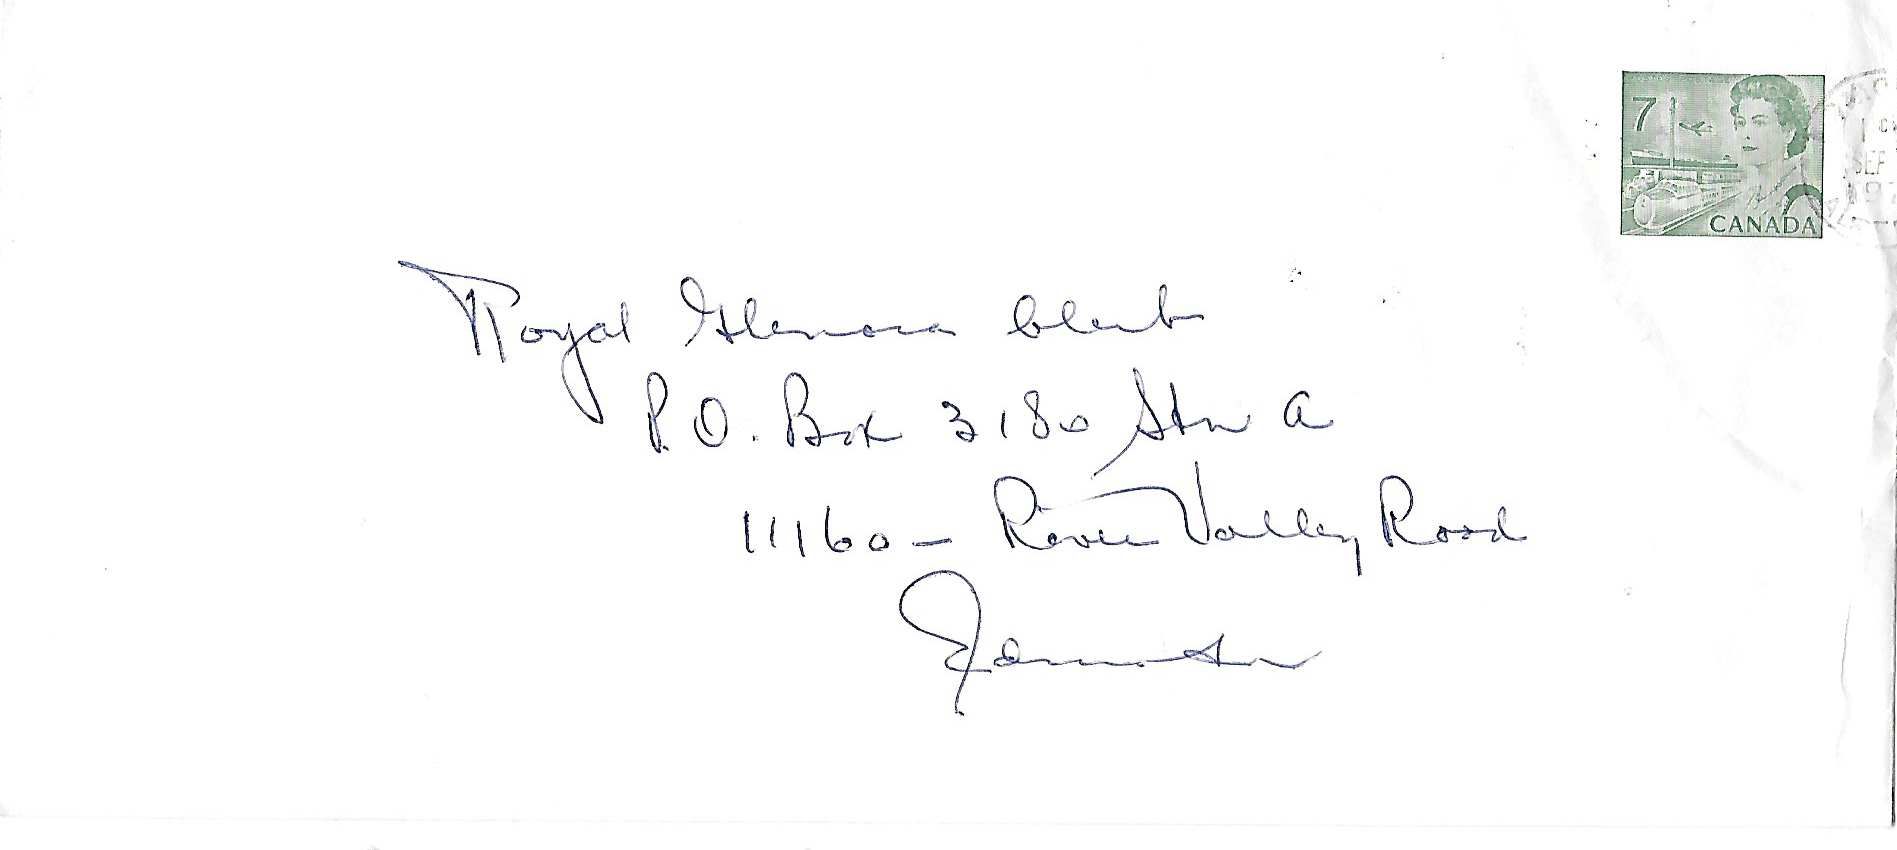 7
CANADA
SEP
Royal Glenora Club
P.O. Box 3180 Stn A
11160 - River Valley Road
Edmonton